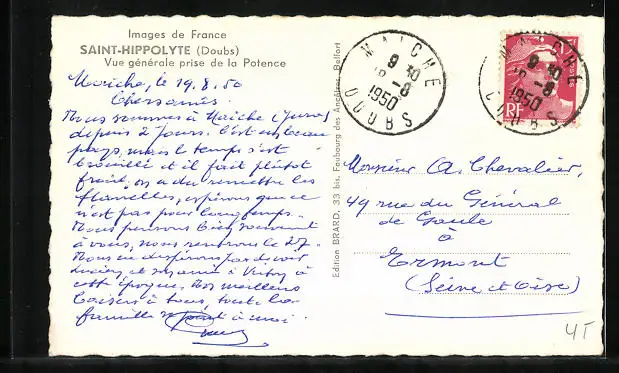 Images de France
SAINT-HIPPOLYTE (Doubs)
Vue générale prise de la Potence
Maîche, le 19.8.50
Chers amis
Nous sommes à Maîche (Jura)
depuis 2 jours. C'est un beau
pays, mais le temps s'est
brouillé et il fait plutôt
froid, on a du remettre les
flanelles, espérons que ce
n'est pas pour longtemps.
Nous pensons bien souvent
à vous, nous rentrons le 27.
Nous ne désespérons pas de voir
et à Vitry à
cette époque. Nos meilleurs
baisers à tous, toute la
famille se joint à moi.
Edition BRARD, 33 bis, Faubourg des Ancêtres, Belfort
MAICHE
9 30
-8
1950
DOUBS
MAICHE
9 30
-8
1950
DOUBS
RF
Monsieur A. Chevalier,
49 rue du Général
de Gaule
à
Ermont
(Seine et Oise)
4T